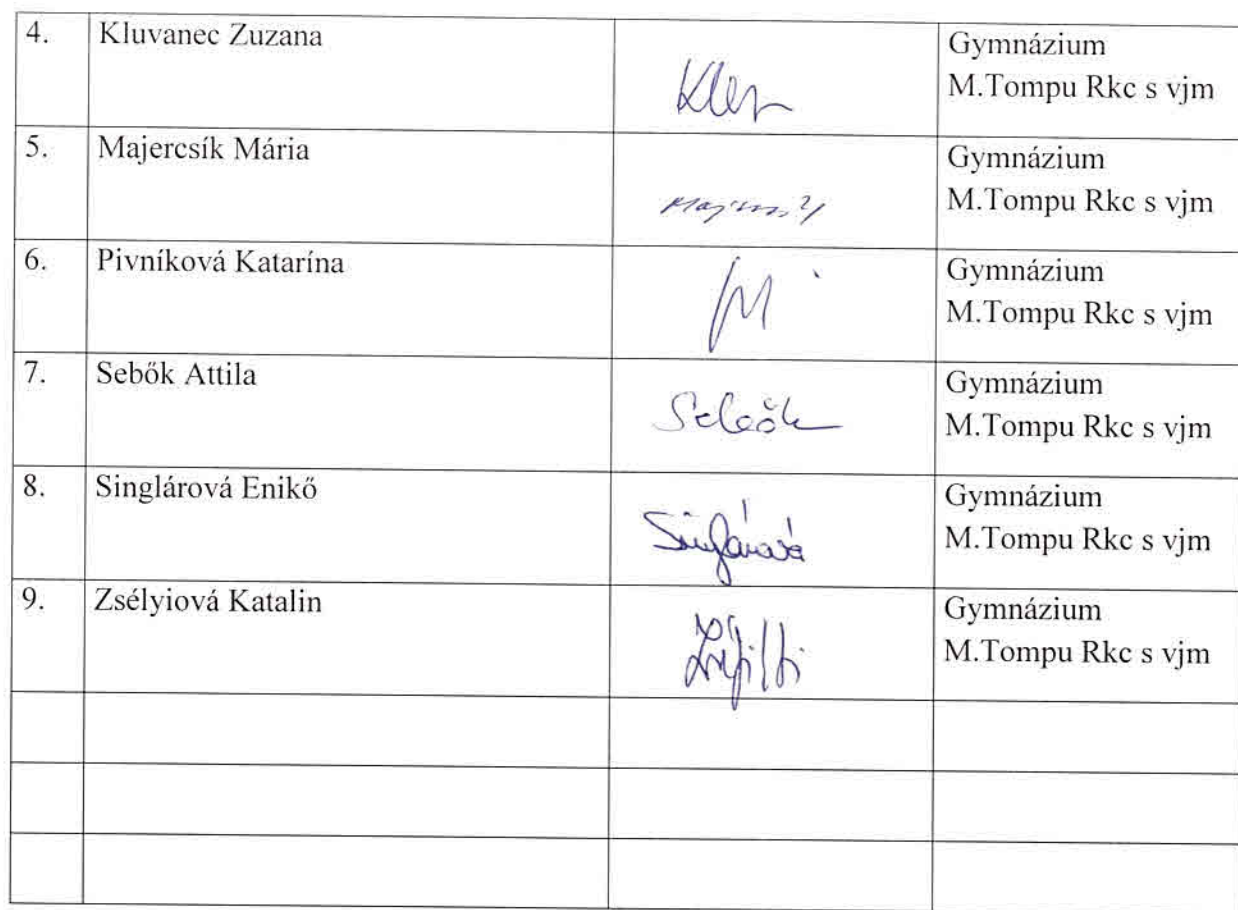 4. Kluvanec Zuzana Gymnázium
M.Tompu Rkc s vjm
5. Majercsík Mária Gymnázium
M.Tompu Rkc s vjm
6. Pivníková Katarína Gymnázium
M.Tompu Rkc s vjm
7. Sebők Attila Sebők Gymnázium
M.Tompu Rkc s vjm
8. Singlárová Enikő Singlárová Gymnázium
M.Tompu Rkc s vjm
9. Zsélyiová Katalin Gymnázium
M.Tompu Rkc s vjm